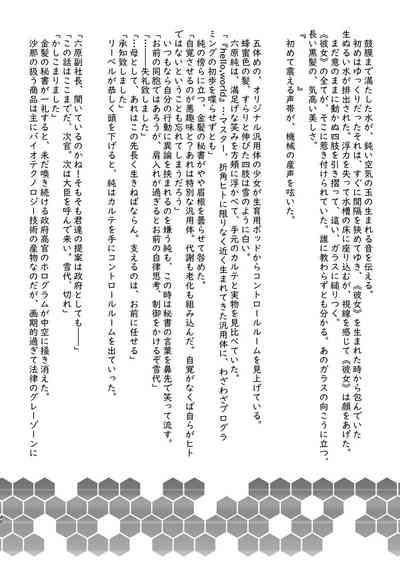 鼓膜まで満たした水が、鈍い空気の玉の生まれる音を伝える。
初めはゆっくりだったそれは、すぐに間隔を狭めてゆき、《彼女》を生まれた時から包んでいた
生ぬるい水が排出された。浮力を失って水槽の床に座り込むが、視線を感じて《彼女》は顔をあげた。
まだ意のままに動かぬ四肢を引き摺って、這い、ガラスに縋りつく。
《彼女》の全てが、そこに惹き付けられていた。誰に教わらずとも分かる。あのガラスの向こうに立つ、
長い黒髪の、気高い美しさ。
初めて震える声帯が、機械の産声を呟いた。
五体めの、オリジナル汎用体の少女が生育用ポッドからコントロールルームを見上げている。
蜂蜜色の髪、すらりと伸びた四肢は雪のように白い。
六原純は、満足げな笑みを片頬に浮かべて、手元のカルテと実物を見比べていた。
「『helloworld』…マスター、折角ヒトに限りなく近く生まれてきた汎用体に、わざわざプログラ
ミングの初歩を喋らせずとも」
純の傍らに立つ、金髪の秘書がやや眉根を曇らせて咎めた。
「自覚させるのが悪趣味と？あれは特別な汎用体。代謝も老化も組み込んだ。自覚がなくば自らがヒト
ではないということも忘れてしまうだろう」
いつもなら自分の行動に異論を挟まれるのを嫌う純も、この時は秘書の言葉を鼻先で笑って流す。
「お前の同胞ではあろうが、肩入れが過ぎるとお前の自律思考、制御をかけるぞ雪代」
「……失礼致しました」
「…母として、あれはこの先長く生きねばならん。支えるのは、お前に任せる」
「承知致しました」
リーベルが恭しく頭を下げると、純はカルテを手にコントロールルームを出ていった。
「六原副社長、聞いているのかね！そもそも君達の提案は政府としても――」
「この話はここまでだ、次官。次は大臣を呼んで来い。雪代、切れ」
「かしこまりました」
金髪の秘書が一礼すると、未だ喚き続ける政府高官のホログラムが中空に掻き消えた。
沙那の扱う商品は主にバイオテクノロジー技術の産物なのだが、画期的過ぎて法律のグレーゾーンに